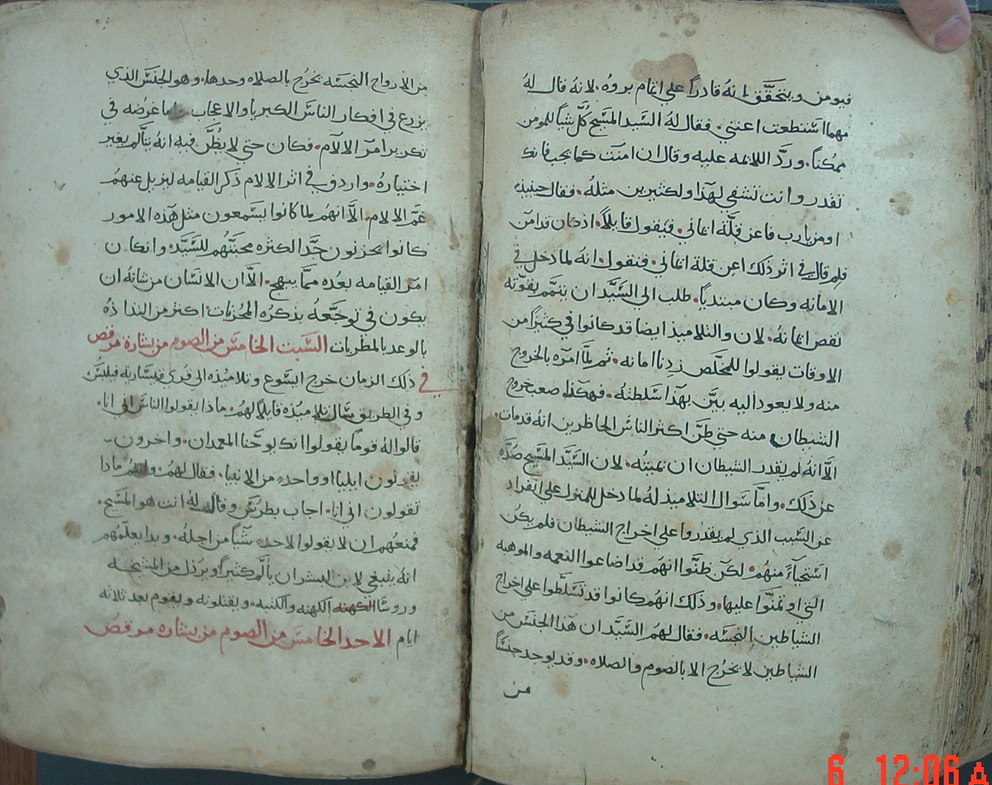 فيومن ويتحقق انه قادراً على اتمام بروه. لانه قال له
مهما استطعت اعنني. فقال له السيد المسيح كل شياً للمومن
ممكناً. وردَّ اللائمه عليه وقال ان امنت كما يجب فانك
تقدر وانت تشفي لهذا ولكثيرين مثله. فقال حينيذٍ
اومن يارب فاعن قلَّة اماني. فيقول قايلاً. اذ كان قد امن
فلم قال في اثر ذلك اعن قلة اماني. فنقول انه لما دخل في
الامانه وكان مبتدياً. طلب الي السَّيِّد ان يتمم بقوَّته
نقص امانه. لان والتلاميذ ايضا قد كانوا في كثيراً من
الاوقات يقولوا للمخلص زدنا امانه. ثم لمَّا امره بالخروج
منه ولا يعود اليه بيَّن بهذا سلطته. فهكذا صعب خروج
الشيطان منه حتي ظنَّ اكثر الناس الحاظرين انه قد مات.
الَّا انه لم يقدر الشيطان ان يميته. لان السَّيِّد المسَّيح صدَّه
عن ذلك. وامَّا سوال التلاميذ له لما دخل للمنزل علي انفراد
عن السبب الذي لم يقدروا علي اخراج الشيطان فلم يكن
استحياءً منهم. لكن ظنُّوا انهم قد اضاعوا النعمه والموهبه
التي اوتمنُّوا عليها. وذلك انهم كانوا قد تسَلَّطوا علي اخراج
الشياطين النجسَه. فقال لهم السَّيِّد ان هذا الجنس من
الشياطين لا يخرج الا بالصوم والصلاه. وقد يوجد جنسَّاً
من
من الارواح النجسَه تخرج بالصلاه وحدها. وهو الجنسَ الذي
يزرع في افكار الناسَ الكبريا والاعجاب. عرضه في
تكرير امر الالام. فكان حتي لا يظُنَّ فيه انه يتألم بغير
اختياره. واردف في اثر الالام ذكر القيامه ليزيل عنهم
غمَّ الالام. الَّا انهم لما كانوا يسَمعون مثل هذه الامور
كانوا يحزنون جدَّاً لكثرة محبَّتهم للسَّيِّد. وان كان
امر القيامه بعده ممَّا يبهج. الَّا ان الانسَان من شانه ان
يكون في توجَّعه بذكره المحزنات اكثر من التذاذه
بالوعد بالمطربات السَّبت الخامسَ من الصوم من بشارة مرقص
في ذلك الزمان خرج ايسُّوع وتلاميذه الي قري قيسَّارية فيلبسَّ
وفي الطريق سَّال تلاميذه قايلاً لهم. ماذا يقولوا الناسَ اني انا.
قالوا له قوماً يقولوا انك يوحنا المعمدان. واخرون
يقولون ايليا او واحده من الانبيا. فقال لهم. وانتم ماذا
تقولون اني انا. اجاب بطرسَّ وقال له انت هو المسَّيح.
فمنعهم ان لا يقولوا لاحده شيَّاً من اجله. وبدا يعلّمهم
انه ينبغي لابن البشر ان يألم كثيراً ويرذل من المشيخه
وروسَّا الكهنه الكهنه والكتبه. ويقتلونه ويقوم بعد ثلاثة
ايام الاحد الخامسَ من الصوم من بشارة مرقص
6 12:06